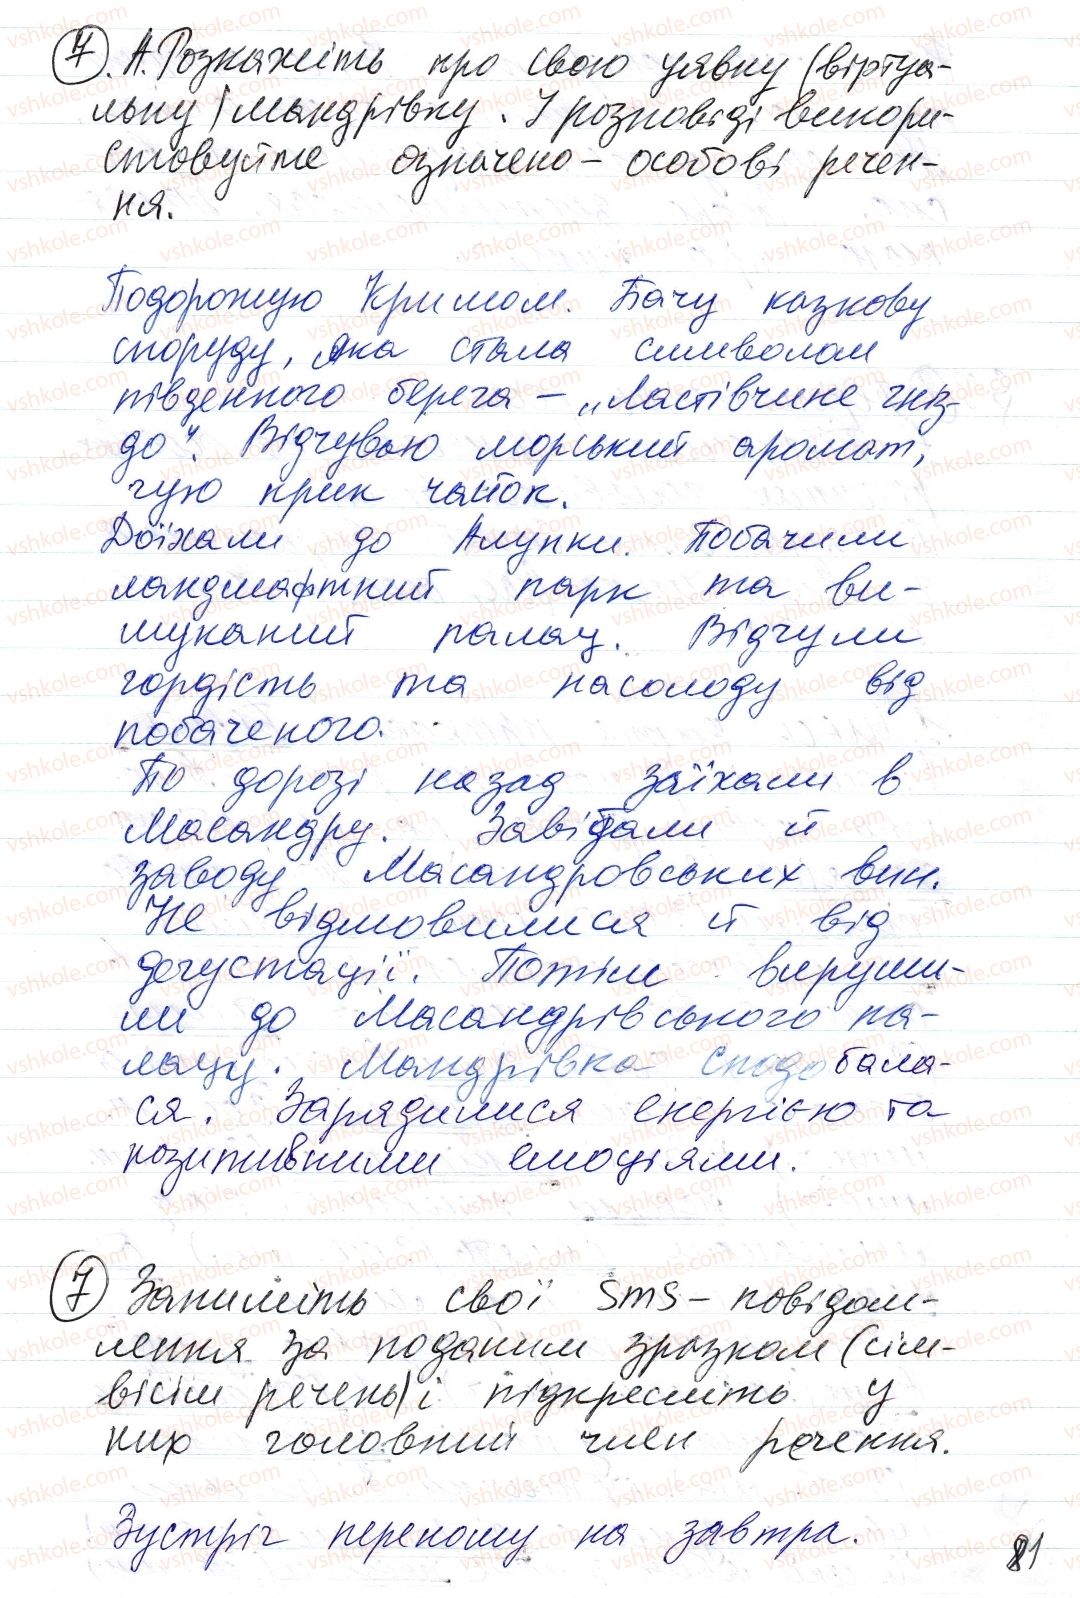 7. А. Розкажіть про свою уявну (віртуа-
льну) мандрівку. У розповіді викори-
стовуйте означено-особові речен-
ня.
Подорожую Кримом. Бачу казкову
споруду, яка стала символом
південного берега - „Ластівчине гніз-
до". Відчуваю морський аромат,
чую крик чайок.
Доїхали до Алупки. Побачили
ландшафтний парк та ви-
шуканий палац. Відчули
гордість та насолоду від
побаченого.
По дорозі назад заїхали в
Масандру. Завітали й
заводу Масандровських вин.
Не відмовилися й від
дегустації. Потім вируши-
ли до Масандрівського па-
лацу. Мандрівка сподобала-
ся. Зарядилися енергією та
позитивними емоціями.
7 Запишіть свої SMS-повідом-
лення за поданим зразком (сім-
вісім речень) і підкресліть у
них головний член речення.
Зустріч переношу на завтра.
81